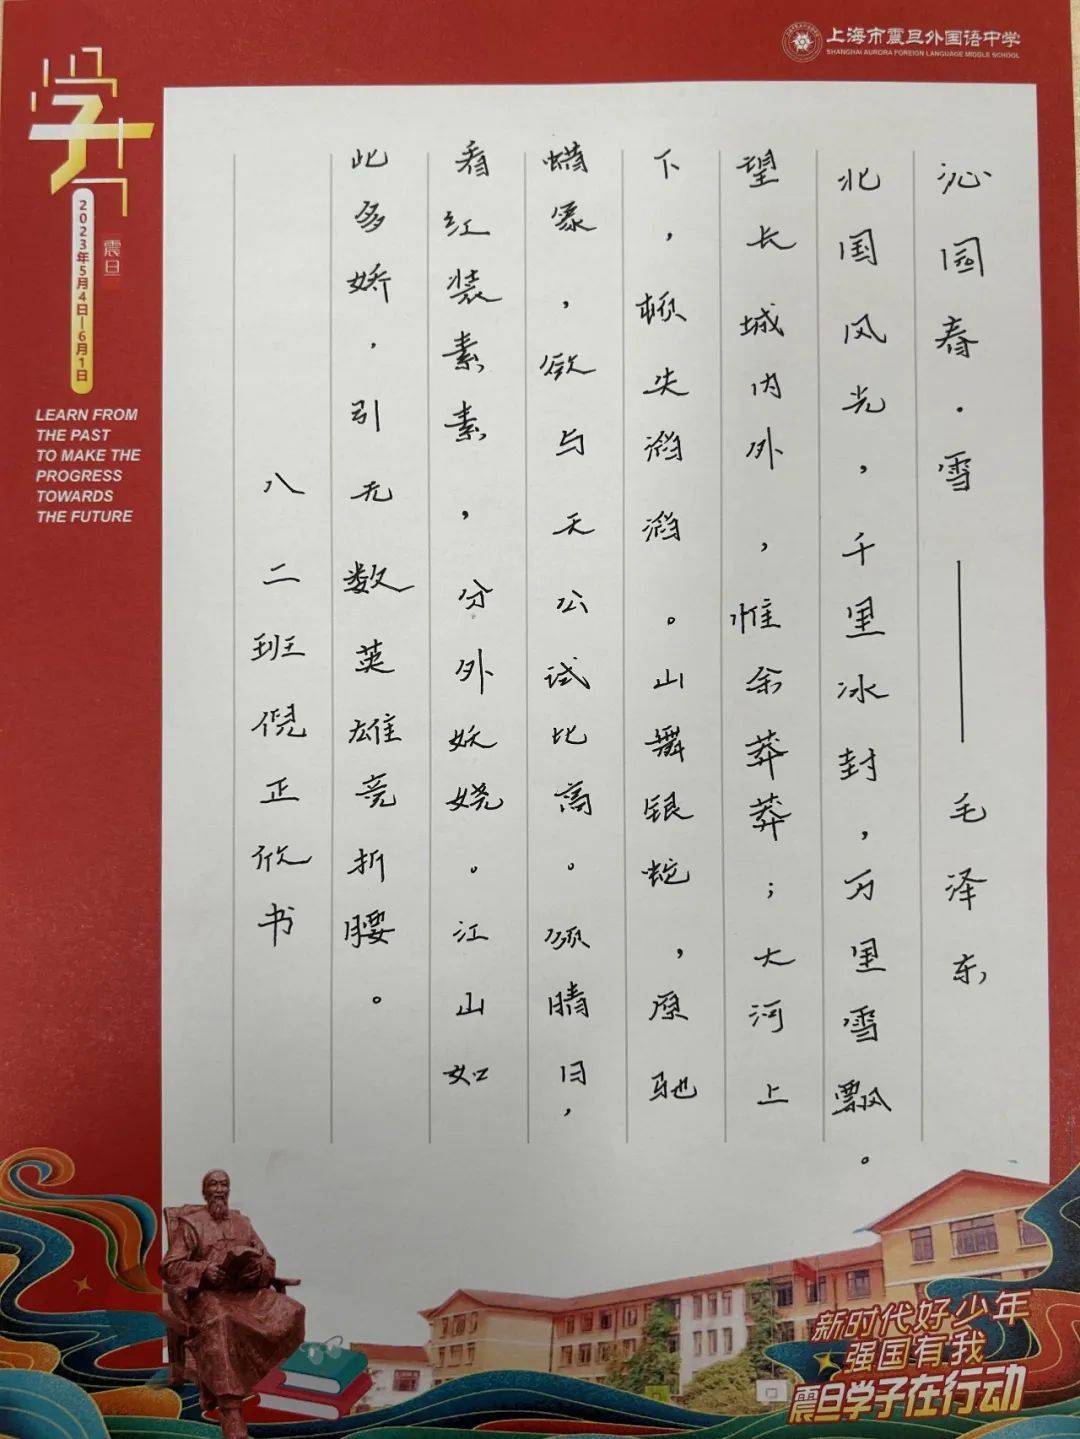 上海市震旦外国语中学
SHANGHAI AURORA FOREIGN LANGUAGE MIDDLE SCHOOL
学
震旦
2023年5月4日—6月1日
LEARN FROM
THE PAST
TO MAKE THE
PROGRESS
TOWARDS
THE FUTURE
沁园春·雪——毛泽东
北国风光，千里冰封，万里雪飘。
望长城内外，惟余莽莽；大河上
下，顿失滔滔。山舞银蛇，原驰
蜡象，欲与天公试比高。须晴日，
看红装素素，分外妖娆。江山如
此多娇，引无数英雄竞折腰。
八二班倪正欣书
新时代好少年
强国有我
震旦学子在行动